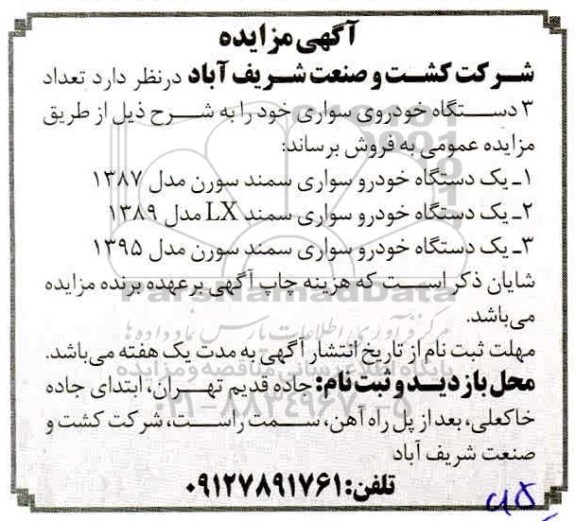 آگهی مزایده
شرکت کشت و صنعت شریف آباد درنظر دارد تعداد
۳ دستگاه خودروی سواری خود را به شرح ذیل از طریق
مزایده عمومی به فروش برساند:
۱ـ یک دستگاه خودرو سواری سمند سورن مدل ۱۳۸۷
۲ـ یک دستگاه خودرو سواری سمند LX مدل ۱۳۸۹
۳ـ یک دستگاه خودرو سواری سمند سورن مدل ۱۳۹۵
شایان ذکر است که هزینه چاپ آگهی برعهده برنده مزایده
می‌باشد.
مهلت ثبت نام از تاریخ انتشار آگهی به مدت یک هفته می‌باشد.
محل بازدید و ثبت نام: جاده قدیم تهران، ابتدای جاده
خاکعلی، بعد از پل راه آهن، سمت راست، شرکت کشت و
صنعت شریف آباد
تلفن: ۰۹۱۲۷۸۹۱۷۶۱
ParsNamadData
مرکز فرآوری اطلاعات پارس نماد داده ها
پایگاه اطلاع رسانی مناقصه و مزایده
۰۲۱-۸۸۳۴۹۶۷۰-۵